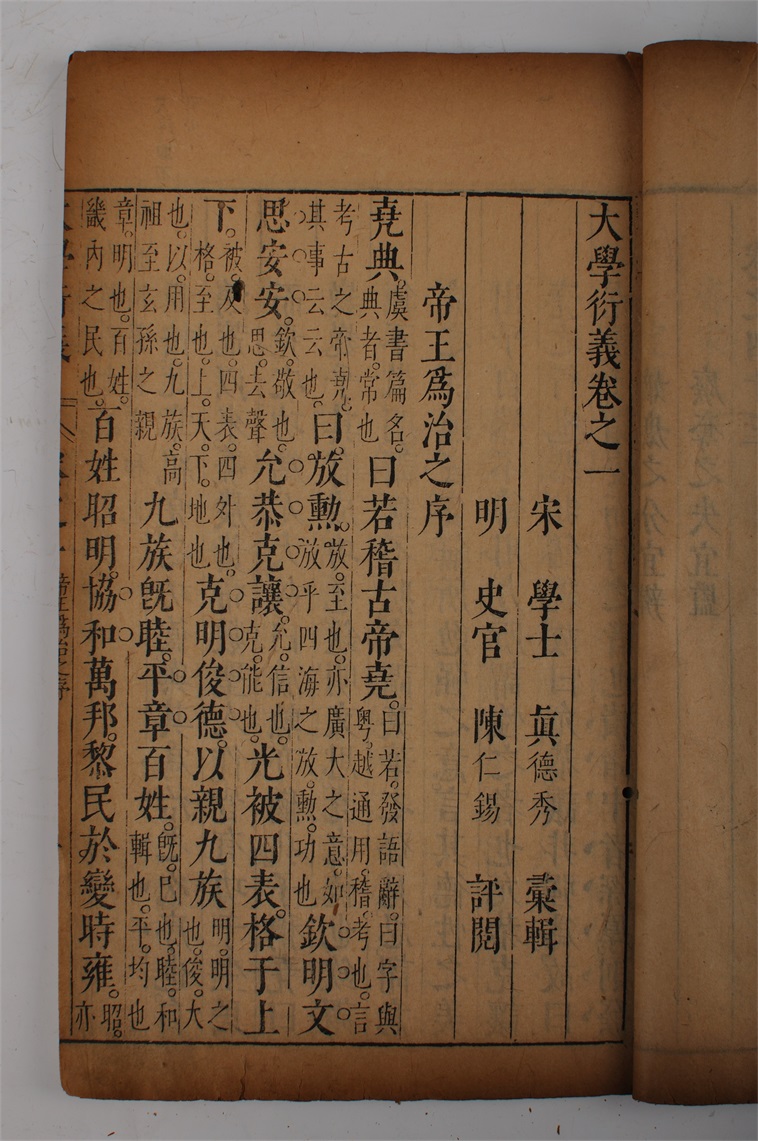 大學衍義卷之一
宋 學士 眞德秀 彙輯
明 史官 陳仁錫 評閱
帝王爲治之序
堯典。虞書篇名。典者。常也曰若稽古帝堯。曰若。發語辭。曰字與粵。越通用。稽。考也。言
考古之帝堯。其事云云也。曰。放勲。放。至也。亦廣大之意。如放乎四海之放。勲。功也欽明文
思安安。欽。敬也。思。去聲允恭克讓。允。信也。克。能也。光被四表。格于上
下。被。及也。四表。四外也。格。至也。上。天。下。地也克明俊德。以親九族明。明之也。俊。大
也。以。用也。九族。高祖至玄孫之親九族旣睦。平章百姓。旣。已也。睦。和輯也。平。均也
章。明也。百姓。畿內之民也。百姓昭明。協和萬邦。黎民於變時雍。昭。亦
大學衍義 卷之一 帝王爲治之序